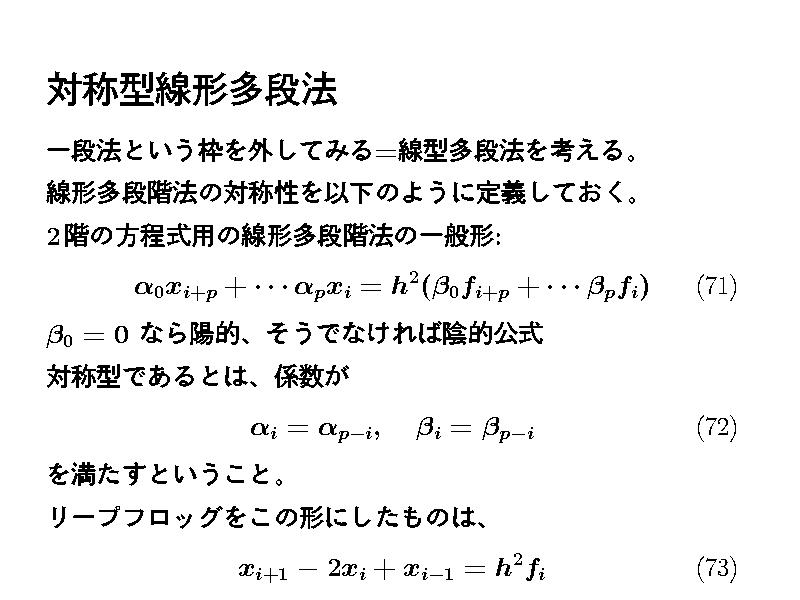 対称型線形多段法
一段法という枠を外してみる=線型多段法を考える。
線形多段階法の対称性を以下のように定義しておく。
2階の方程式用の線形多段階法の一般形:
α₀x_{i+p} + ⋯ α_p x_i = h²(β₀f_{i+p} + ⋯ β_p f_i) (71)
β₀ = 0 なら陽的、そうでなければ陰的公式
対称型であるとは、係数が
α_i = α_{p−i}, β_i = β_{p−i} (72)
を満たすということ。
リープフロッグをこの形にしたものは、
x_{i+1} − 2x_i + x_{i−1} = h²f_i (73)